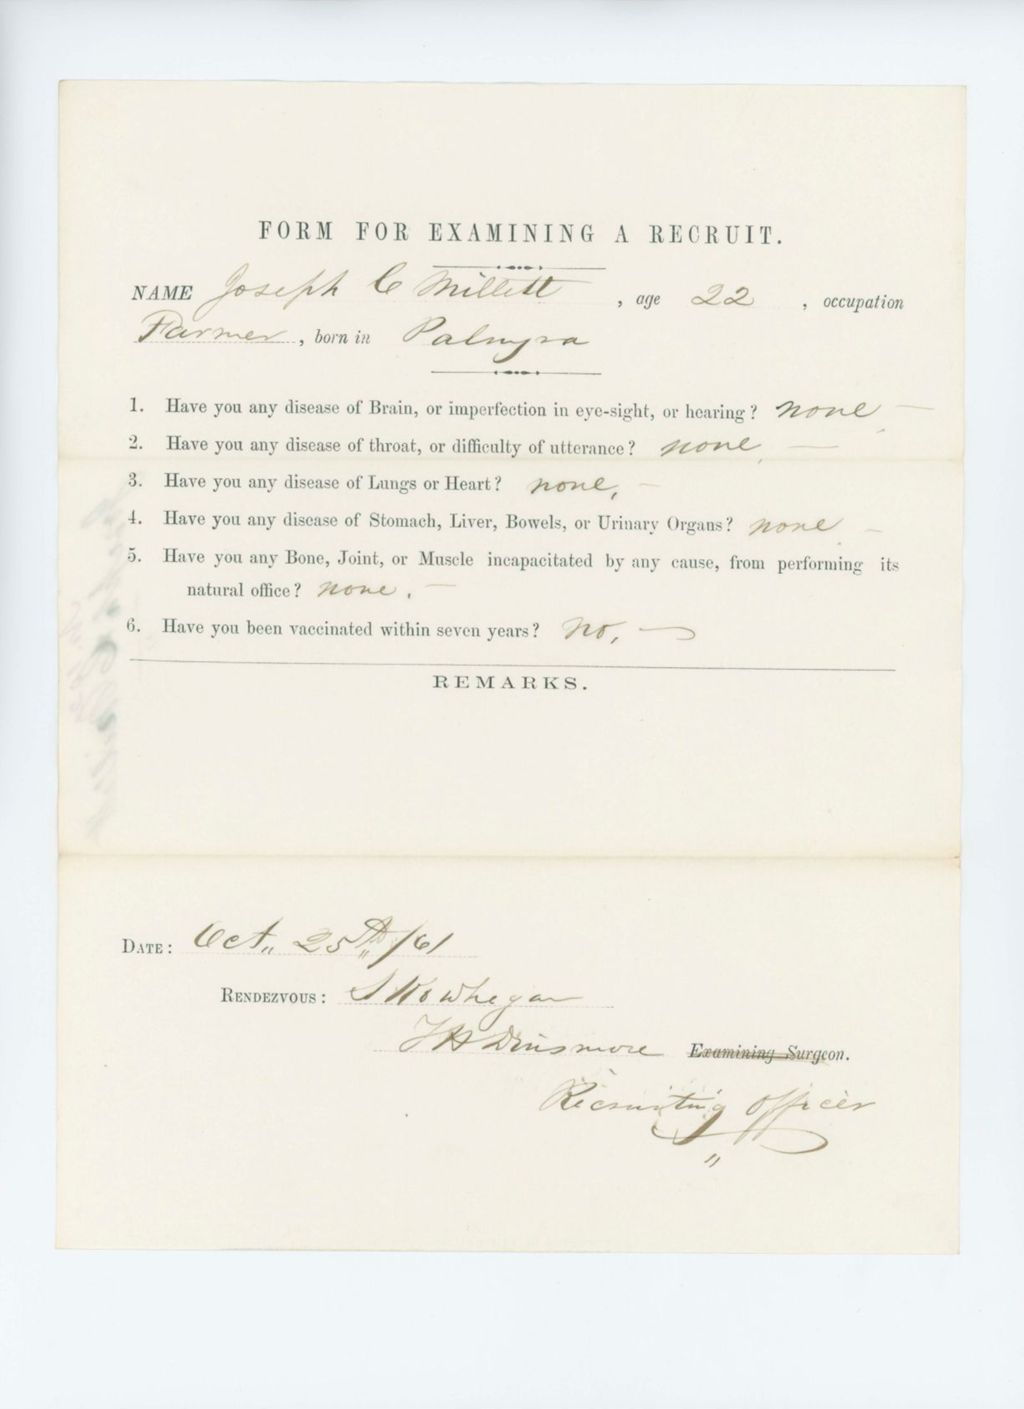 FORM FOR EXAMINING A RECRUIT.
NAME Joseph C Millett, age 22, occupation
Farmer, born in Palmyra
1. Have you any disease of Brain, or imperfection in eye-sight, or hearing? none —
2. Have you any disease of throat, or difficulty of utterance? none, —
3. Have you any disease of Lungs or Heart? none, —
4. Have you any disease of Stomach, Liver, Bowels, or Urinary Organs? none, —
5. Have you any Bone, Joint, or Muscle incapacitated by any cause, from performing its
natural office? none, —
6. Have you been vaccinated within seven years? no, —
REMARKS.
DATE: Oct,, 25th,, /61
RENDEZVOUS: Skowhegan
Dinsmore Examining Surgeon.
Recruiting Officer
"